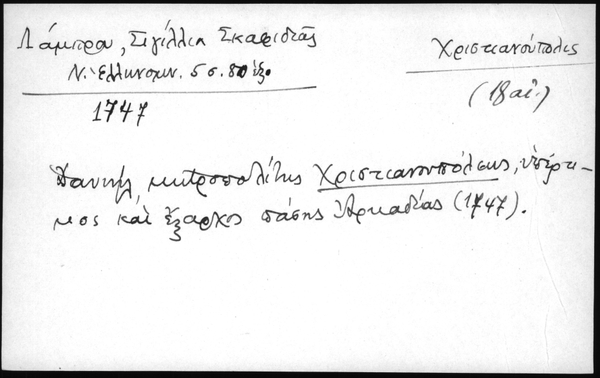 Λάμπρου, Σιγίλλια Σκαφιδιᾶς
Ν. Ἑλληνομν. 5 σ. 80 ἑξ.
1747
Χριστιανούπολις
(18 αἰ.)
Δανιήλ, μητροπολίτης Χριστιανουπόλεως, ὑπέρτι-
μος καὶ ἔξαρχος πάσης Ἀρκαδίας (1747).